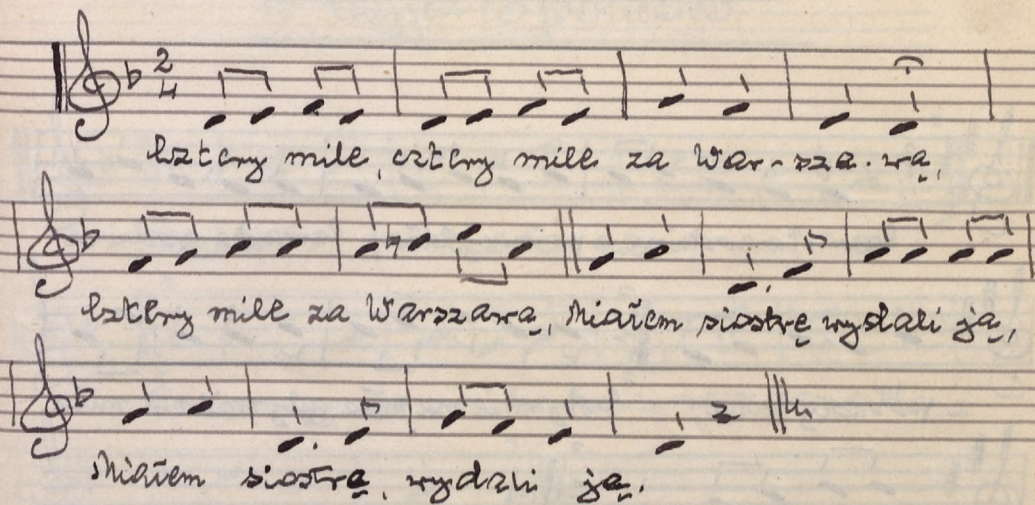 2/4
Cztery mile, cztery mile za War-sza-wą,
Cztery mile za Warszawą, Miałem siostrę wydali ją,
Miałem siostrę, wydali ją.